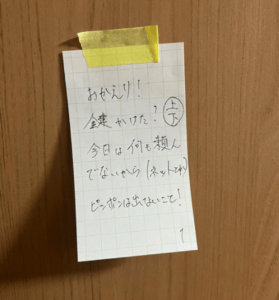 おかえり!
鍵かけた? 上下
今日は何も頼ん
でないから(ネットでも)
ピンポンは出ないこと!